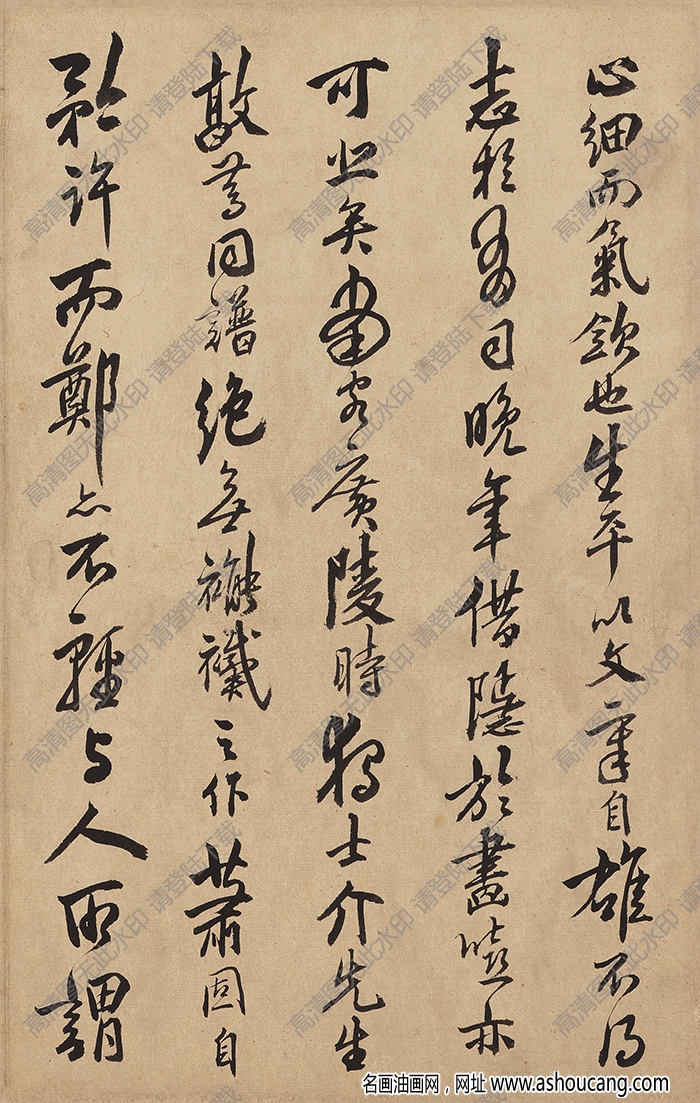 心細而氣斂也生平以文章自雄不得
志於有司晚年借隱於畫噫亦
可悲矣當客廣陵時獨士介先生
敦喬同譜絕無褦襶之作蕭固自
矜許而鄭亦不輕与人所謂
名画油画网，网址 www.ashoucang.com
高清图无此水印·请登陆下载